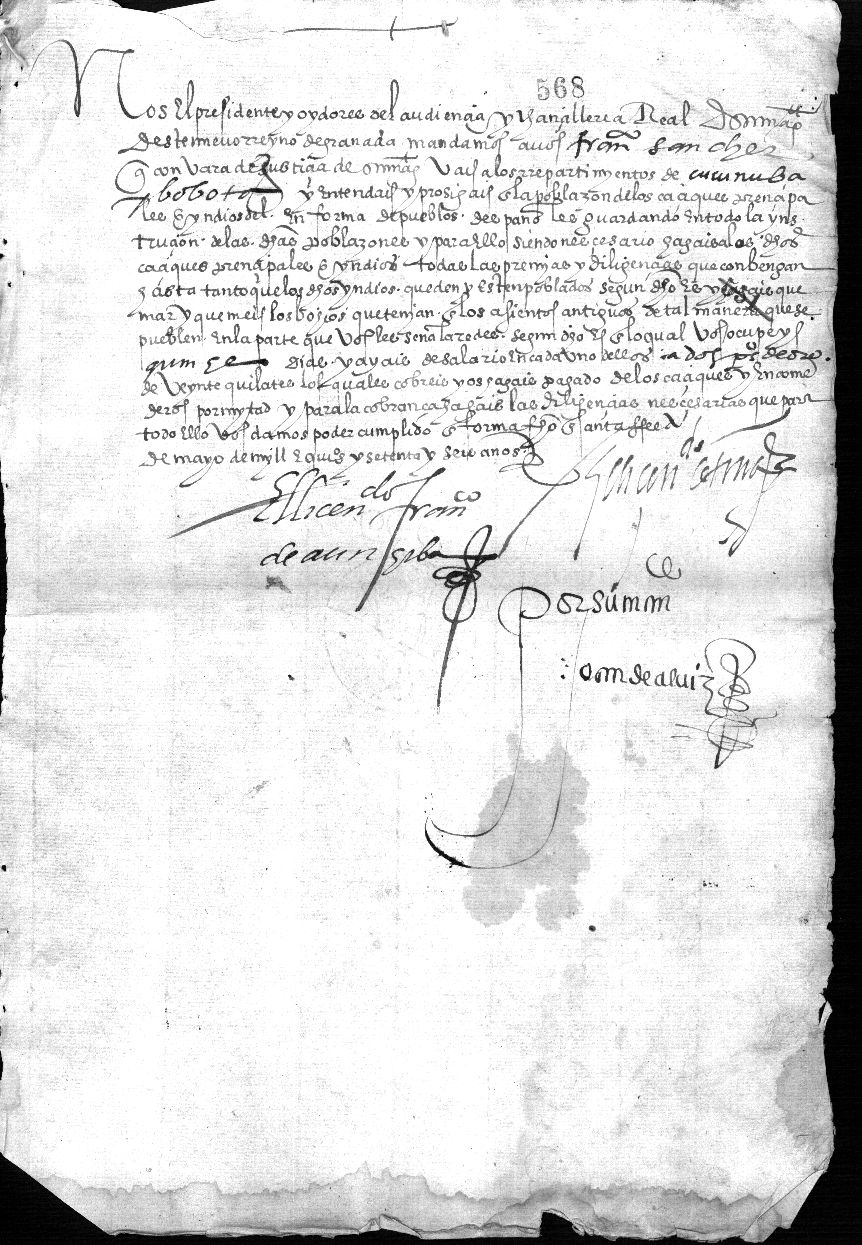 568
Nos El presidente y oydores del audiençia y chançilleria Real de su mag
deste nuevo rreyno de granada mandamos a vos franco sanchez
q con vara de Justiçia de su mag vais a los rrepartimientos de cucunuba
y bobota y Entendais y prosigais En la poblazon de los caçiques prençipa
les E yndios del En forma de pueblos despanoles guardando En todo la yns
truçion de las dhas poblazones y para Ello siendo nesçesario hagais a los dhos
caçiques prençipales E yndios todas las premias y diligençias que conbengan
hasta tanto que los dhos yndios queden y Esten poblados segun dho Es y hagais que
mar y quemeis los bohios que tenian En los asientos antiguos de tal manera que se
pueblen En la parte que vos les señalaredes segun dho Es En lo qual vos ocupeys
quinze dias y ayais de salario En cada uno dellos a dos pos de oro
de veynte quilates los quales cobreis y os hagais pagado de los caçiques y Encome
deros por mytad y para la cobrança hagais las diligençias nesçesarias que para
todo Ello vos damos poder cumplido En forma fho En santa ffee a
de mayo de myll E quis y setenta y seis anos
El licendo franco
de aunzibay
El licendo
Por su mdo
Joan de alviz